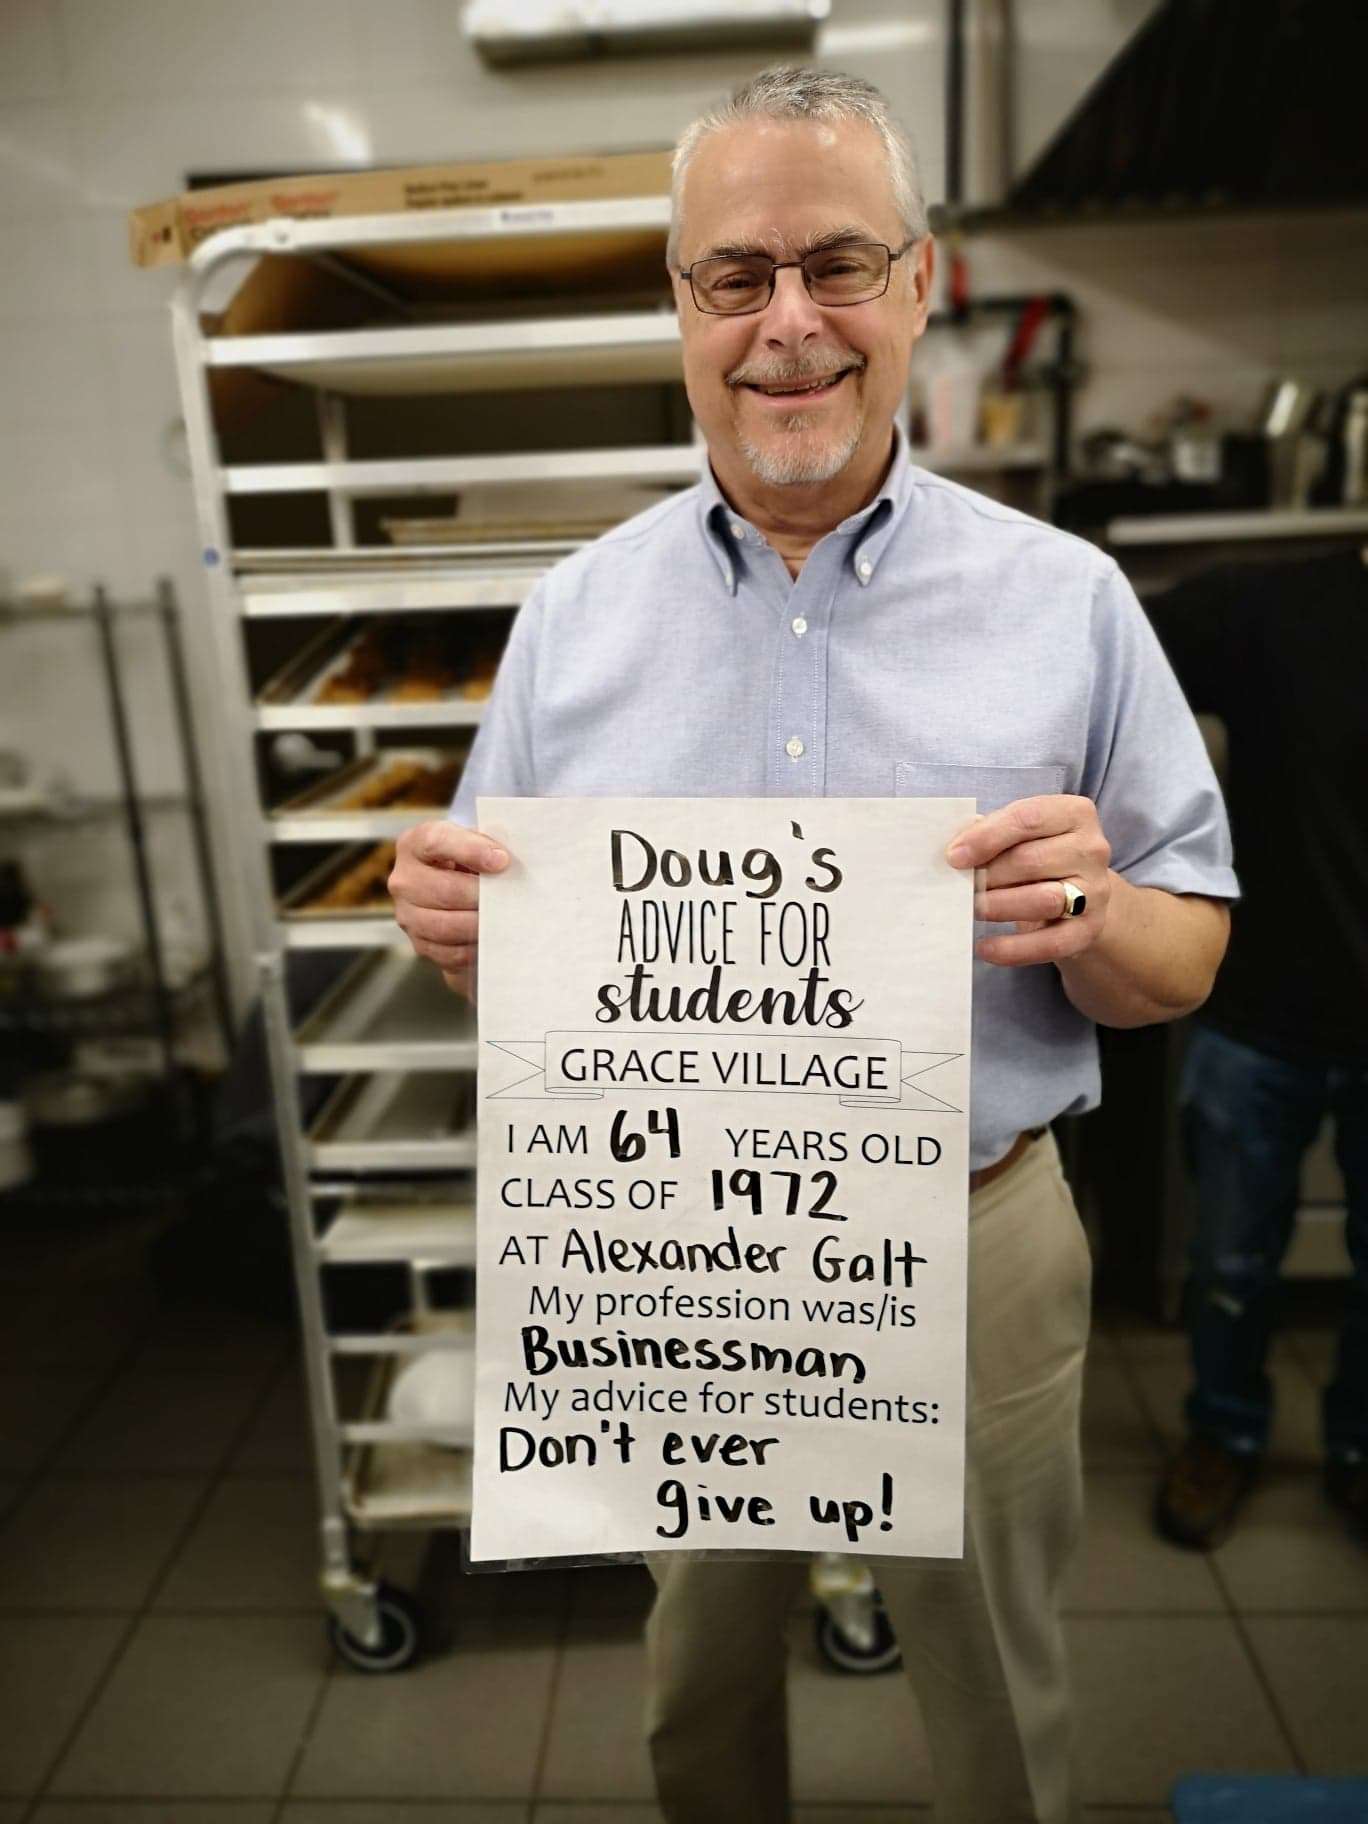 Doug's
ADVICE FOR
students
GRACE VILLAGE
I AM 64 YEARS OLD
CLASS OF 1972
AT Alexander Galt
My profession was/is
Businessman
My advice for students:
Don't ever
give up!